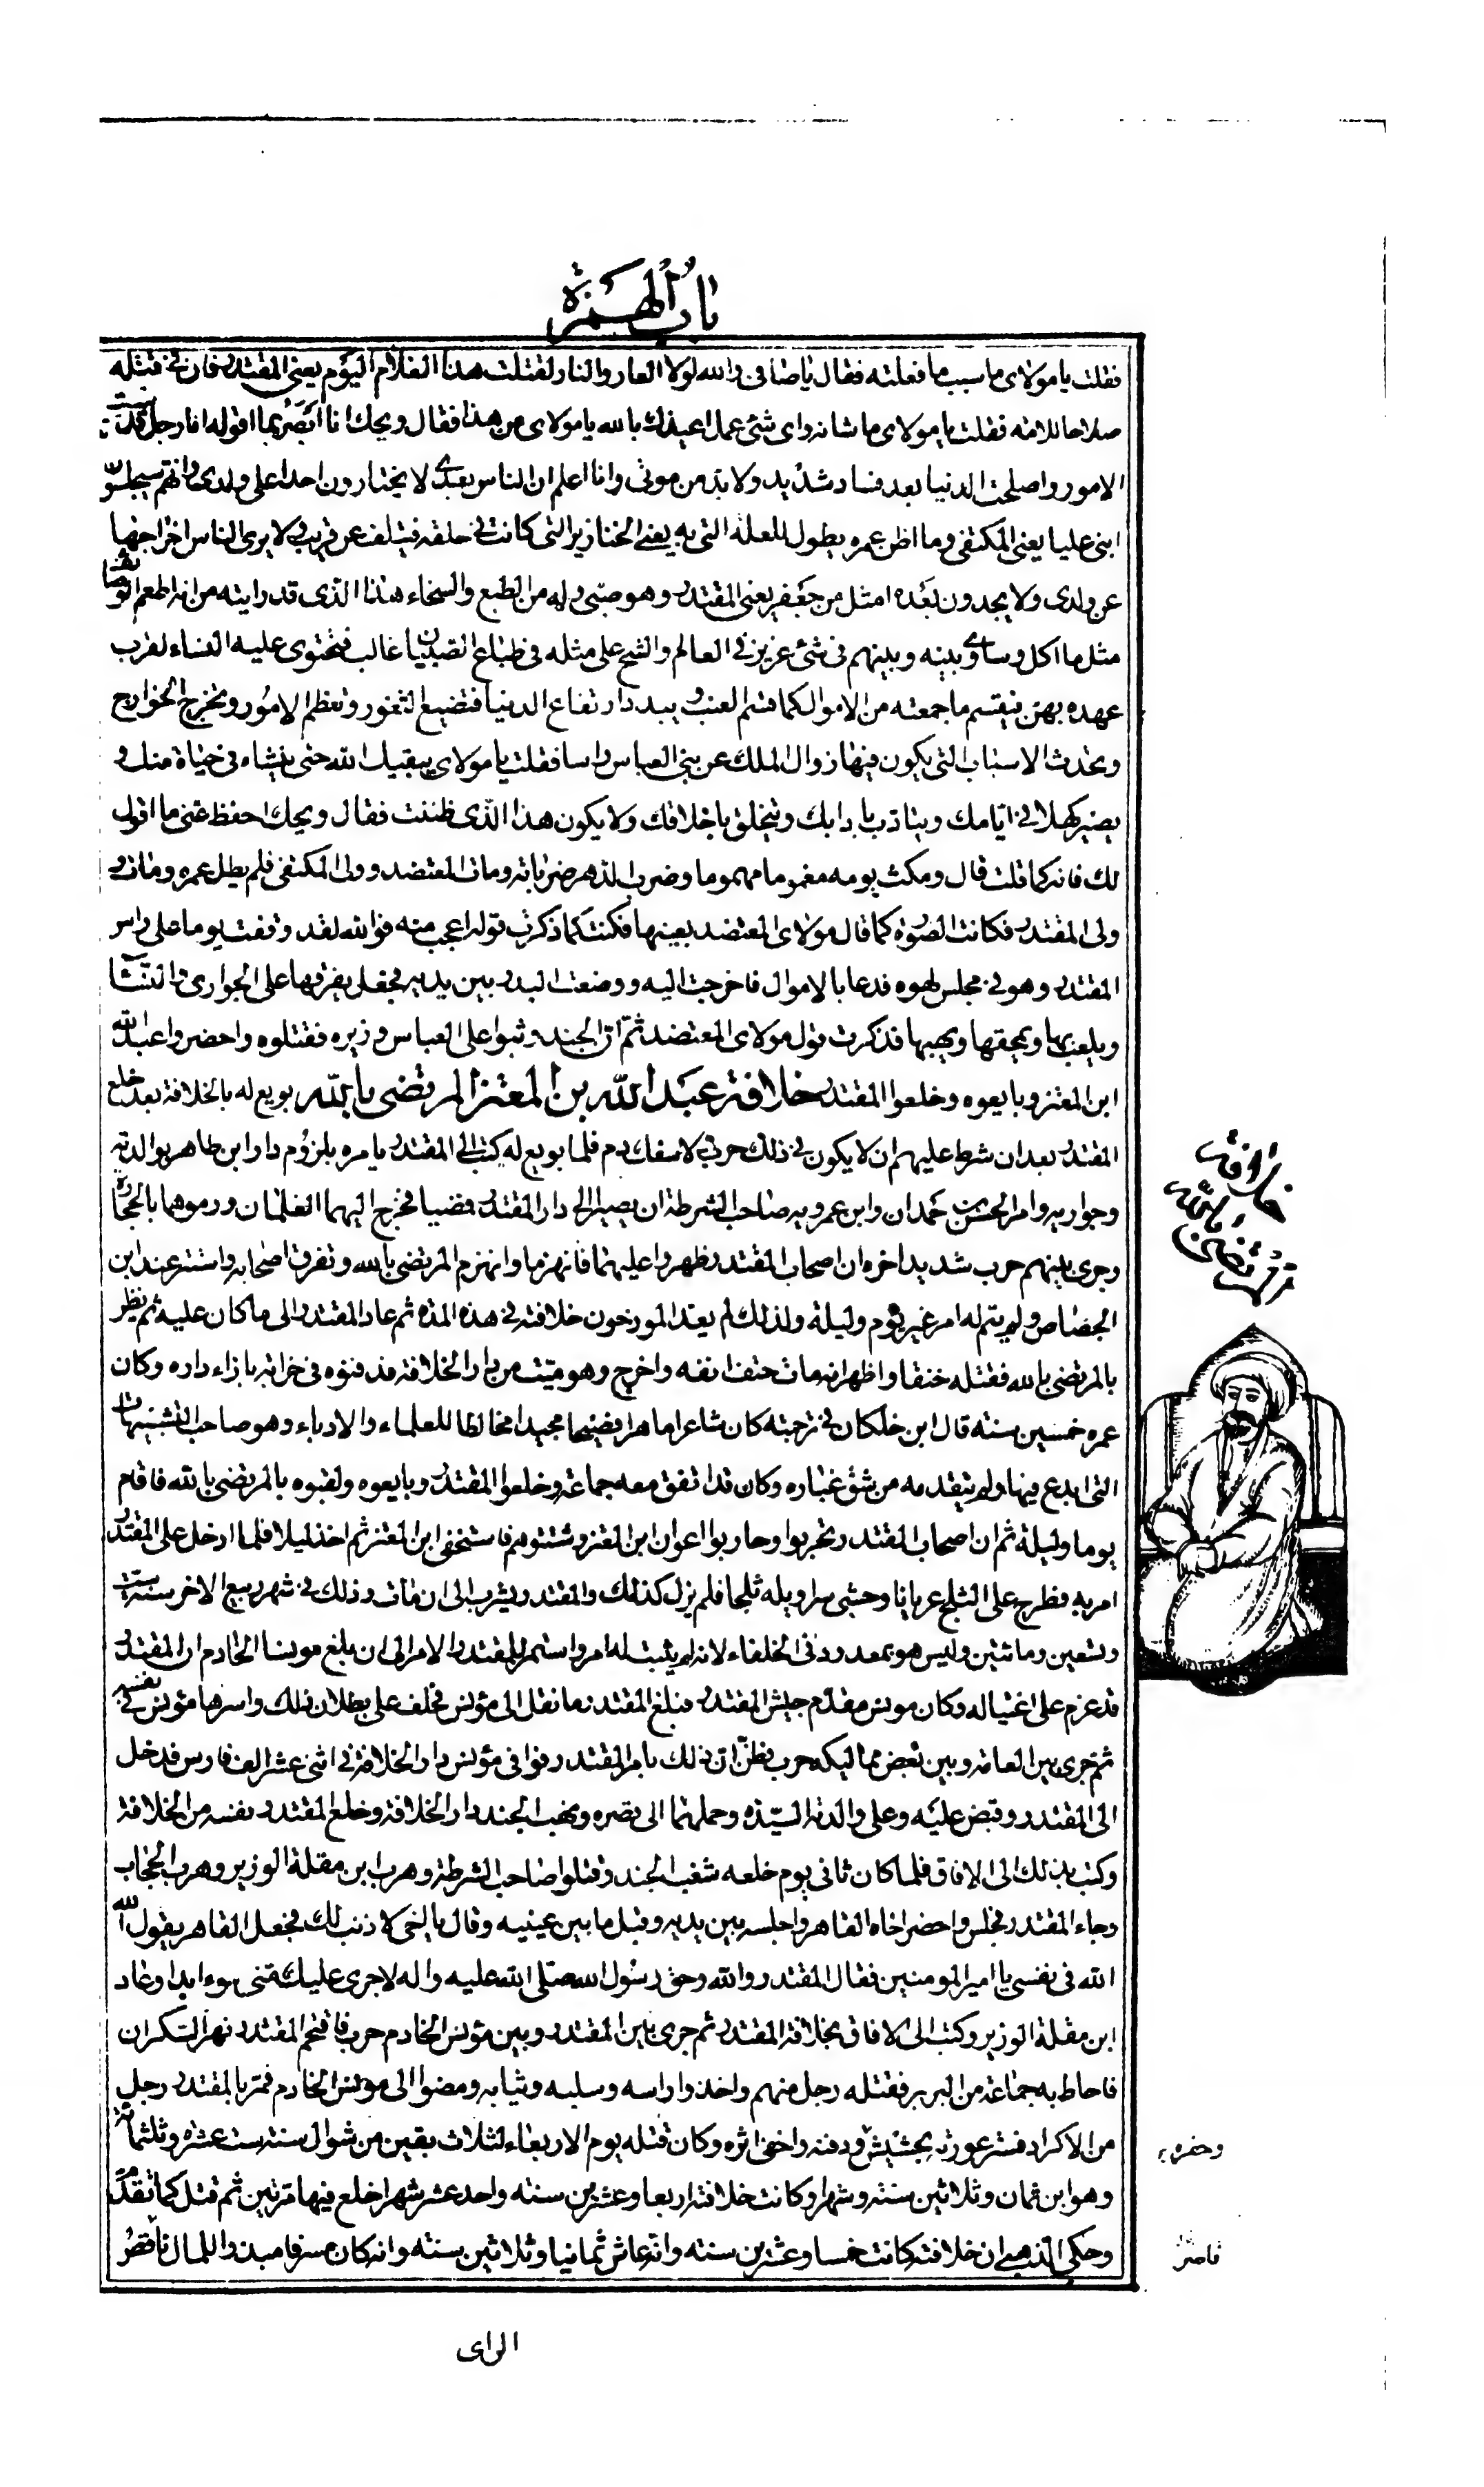 باب الهمزة
فقلت يا مولاى ما سبب ما فعلته فقال يا صافى والله لولا العار والنار لقتلت هذا الغلام اليوم يعنى المقتدر فان فى قتله
صلاحا للامة فقلت يا مولاى ما شانه واى شئ عمل اعيذك بالله يا مولاى من هذا فقال ويحك انا ابصر بما اقوله انا رجل قد سست
الامور واصلحت الدنيا بعد فساد شديد ولا بد من موتى وانا اعلم ان الناس بعدى لا يختارون احدا على ولدى وانهم سيجلسون
ابنى عليا يعنى المكتفى وما اظن عمره يطول للعلة التى به يعنى الخنازير التى كانت فى حلقه فيتلف عن قريب ولا يرى الناس اخراجها
عن ولدى ولا يجدون بعده امثل من جعفر يعنى المقتدر وهو صبى وله من الطبع والسخاء هذا الذى قد رايته من انه اطعم الوصائف
مثل ما اكل وساوى بينه وبينهم فى شئ عزيز فى العالم والشح على مثله فى طباع الصبيان غالب فتحتوى عليه النساء لقرب
عهده بهن فيقسم ما جمعته من الاموال كما قسم العنب ويبدد ارتفاع الدنيا فتضيع الثغور وتعظم الامور وتخرج الخوارج
وتحدث الاسباب التى يكون فيها زوال الملك عن بنى العباس راسا فقلت يا مولاى يبقيك الله حتى ينشاء فى حياة منك و
يصير كهلا فى ايامك ويتادب بادابك ويتخلق باخلاقك ولا يكون هذا الذى ظننت فقال ويحك احفظ عنى ما اقول
لك فانه كما قلت قال ومكث يومه مغموما مهموما وضرب الدهر ضرباته ومات المعتضد وولى المكتفى فلم يطل عمره ومات و
ولى المقتدر فكانت الصورة كما قال مولاى المعتضد بعينها فكنت كلما ذكرت قوله اعجب منه فوالله لقد وقفت يوما على راس
المقتدر وهو فى مجلس لهوه فدعا بالاموال فاخرجت اليه ووضعت البدر بين يديه فجعل يفرقها على الجوارى والنساء
ويلعب بها ويمحقها ويهبها فذكرت قول مولاى المعتضد ثم ان الجند وثبوا على العباس وزيره فقتلوه واحضروا عبد الله
ابن المعتز وبايعوه وخلعوا المقتدر خلافة عبد الله بن المعتز المرتضى بالله بويع له بالخلافة بعد خلع
المقتدر بعد ان شرط عليهم ان لا يكون فى ذلك حرب ولا سفك دم فلما بويع له كتب الى المقتدر يامره بلزوم دار ابن طاهر بوالدته
وجواريه وامر الحسن بن حمدان وابن عمرويه صاحب الشرطة ان يصيرا الى دار المقتدر فمضيا فخرج اليهما الغلمان ورموهما بالحجارة
وجرى بينهم حرب شديد اخره ان اصحاب المقتدر ظهروا عليهما فانهزما وانهزم المرتضى بالله وتفرق اصحابه واستتر عند ابن
الجصاص ولم يتم له امر غير يوم وليلة ولذلك لم يعد المورخون خلافته فى هذه المدة ثم عاد المقتدر الى ما كان عليه ثم نظر
بالمرتضى بالله فقتله خنقا واظهر انه مات حتف انفه واخرج وهو ميت من دار الخلافة فدفنوه فى خرابة بازاء داره وكان
عمره خمسين سنة قال ابن خلكان فى ترجمته كان شاعرا ماهرا فصيحا مجيدا مخالطا للعلماء والادباء وهو صاحب التشبيهات
التى ابدع فيها ولم يتقدمه من شق غباره وكان قد اتفق معه جماعة وخلعوا المقتدر وبايعوه ولقبوه بالمرتضى بالله فاقام
يوما وليلة ثم ان اصحاب المقتدر تحزبوا وحاربوا اعوان ابن المعتز وشتتوهم فاستخفى ابن المعتز ثم اخذ ليلا فلما ادخل على المقتدر
امر به فطرح على الثلج عريانا وحشى سراويله ثلجا فلم يزل كذلك والمقتدر يشرب الى ان مات وذلك فى شهر ربيع الاخر سنة ست
وتسعين ومائتين وليس هو بمعدود فى الخلفاء لانه لم يثبت له امر واستمر للمقتدر الامر الى ان بلغ مونسا الخادم ان المقتدر
قد عزم على اغتياله وكان مونس مقدم جيش المقتدر فبلغ المقتدر ما نقل الى مونس فحلف على بطلان ذلك واسرها مونس فى نفسه
ثم جرى بين العامة وبين بعض مماليكه حرب فظن ان ذلك بامر المقتدر فوافى مونس دار الخلافة فى اثنى عشر الف فارس فدخل
الى المقتدر وقبض عليه وعلى والدته السيدة وحملهما الى قصره ونهب الجند دار الخلافة وخلع المقتدر نفسه من الخلافة
وكتب بذلك الى الافاق فلما كان ثانى يوم خلعه شغب الجند وقتلوا صاحب الشرطة وهرب ابن مقلة الوزير وهرب الحجاب
وجاء المقتدر فجلس واحضر اخاه القاهر واجلسه بين يديه وقبل ما بين عينيه وقال يا اخى لا ذنب لك فجعل القاهر يقول الله
الله فى نفسى يا امير المومنين فقال المقتدر والله وحق رسول الله صلى الله عليه واله لا جرى عليك منى سوء ابدا وعاد
ابن مقلة الوزير وكتب الى الافاق بخلافة المقتدر ثم جرى بين المقتدر وبين مونس الخادم حرب فاقتحم المقتدر نهر السكران
فاحاط به جماعة من البربر فقتله رجل منهم واخذوا راسه وسلبه وثيابه ومضوا الى مونس الخادم فمر بالمقتدر رجل
من الاكراد فستر عورته بحشيش ودفنه واخفى اثره وكان قتله يوم الاربعاء لثلاث بقين من شوال سنة ست عشرة وثلثمائة
وهو ابن ثمان وثلاثين سنة وشهرا وكانت خلافته اربعا وعشرين سنة واحد عشر شهرا خلع فيها مرتين ثم قتل كما تقدم
وحكى الذهبى ان خلافته كانت خمسا وعشرين سنة وانه عاش ثمانيا وثلاثين سنة وانه كان مسرفا مبذرا للمال ناقص
خلافة
مرتضى بالله
وحفره
قاصر
الراى